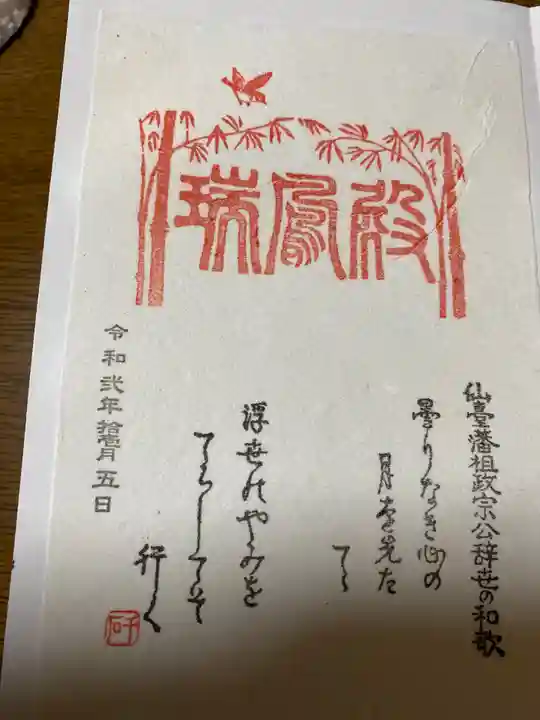 瑞鳳殿
仙臺藩祖政宗公辞世の和歌
曇りなき心の
月を先た
てゝ
浮世のやみを
てらしてそ
行く
令和弐年拾壱月五日